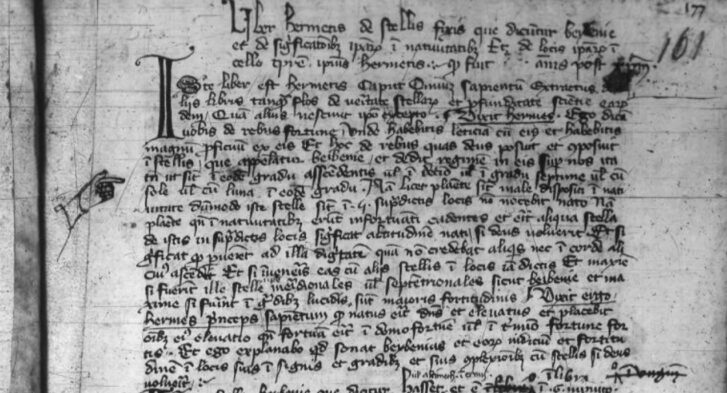 177
161
Liber hermetis de stellis fixis que dicuntur beibenie
et de significationibus ipsarum in nativitatibus Et de locis ipsarum in
celo ipsius hermetis qui fuit annis post
Iste liber est hermetis Caput omnium sapientum Extractus de
aliis libris tamquam flos de veritate stellarum et profunditate scientie earum
dem Quam alius nescivit ipso excepto Dixit hermes Ego dicam
vobis de rebus fortune unde habebitis leticiam cum eis et habebitis
magnum proficuum ex eis Et hoc de rebus quas deus posuit et composuit
in stellis que appellantur beibenie et dedit regimen in eis super nos ita
ut sit in eodem gradu ascendentis vel in decimo vel in gradu septime vel cum
sole vel cum luna in eodem gradu Nam licet planete sint male dispositi in nati
vitate dummodo iste stelle sint in supradictis locis non nocebit nato Nam
planete quando in nativitatibus erunt infortunati cadentes et erit aliqua stella
de istis in supradictis locis significat altitudinem nati si deus voluerit Et si
gnificat quod perveniet ad illam dignitatem quam non credebat aliquis nec in corde ali
cuius ascendit Et si inveneris eas cum aliis stellis in locis iam dictis Et maxime
si fuerint ille stelle meridionales vel septemtrionales sicut beibenie et ma
xime si fuerint in gradibus lucidis sunt maioris fortitudinis Dixit ergo
hermes princeps sapientum quod natus erit dominus et elevatus et placebit
omnibus eius elevatio quando fortuna erit in domo fortune vel in termino fortune for
tis Et ego explanabo quid sonat beibenias et earum iudicium et fortitu
dinem in locis suis in signis et gradibus et suis operibus cum stellis si deus
voluerit
in libra